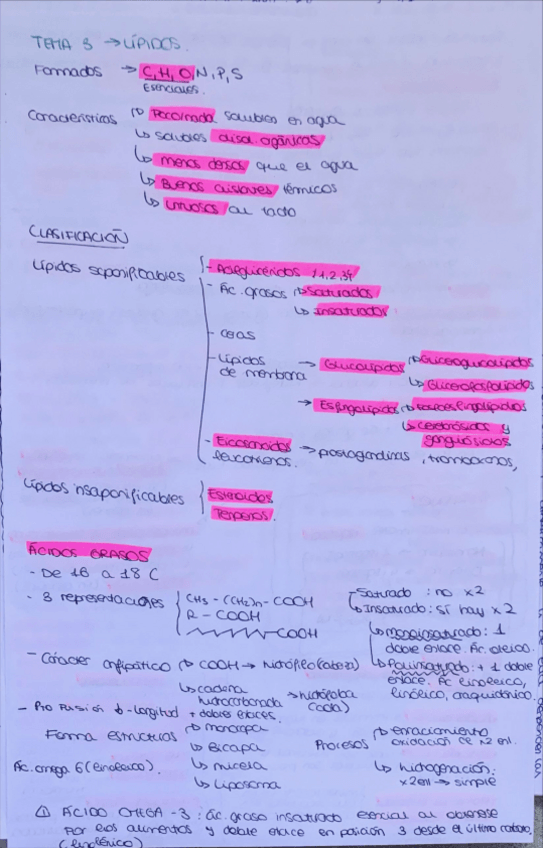 TEMA 3 → LÍPIDOS.
Formados → C, H, O, N, P, S
Esenciales.
Características ↳ Poco/nada solubles en agua
↳ solubles disol. orgánicos
↳ menos densos que el agua
↳ Buenos aislantes térmicos
↳ untuosos al tacto
CLASIFICACIÓN
Lípidos saponificables
- Acilglicéridos 1,2,3
- Ác. grasos ↳ Saturados
↳ Insaturados
- ceras
- Lípidos de membrana → Glucolípidos ↳ Gliceroglucolípidos
↳ Glicerofosfolípidos
→ Esfingolípidos ↳
↳ cerebrósidos y gangliósidos
- Eicosanoides → prostaglandinas, tromboxanos,
leucotrienos.
Lípidos insaponificables
Esteroides
Terpenos.
ÁCIDOS GRASOS
- De 16 a 18 C
- 3 representaciones
CH3 - (CH2)n - COOH
R - COOH
COOH
Saturado: no x2
↳ Insaturado: sí hay x2
↳ monoinsaturado: 1
doble enlace. Ác. oleico.
↳ Poliinsaturado: + 1 doble
enlace. Ác linoleico,
linólico, araquidónico.
- Carácter anfipático ↳ COOH → hidrófilo (cabeza)
↳ cadena hidrocarbonada → hidrófoba (cola)
- Pto Fusión ↳ - longitud + dobles enlaces.
Forma estructuras ↳ monocapa
↳ Bicapa
↳ micela
↳ Liposoma
Procesos ↳ enranciamiento
oxidación de x2 enl.
↳ hidrogenación.
x2 enl → simple
Ác. omega 6 (linoleico).
⚠ ÁCIDO OMEGA - 3: ác. graso insaturado esencial al obtenerse
por los alimentos y doble enlace en posición 3 desde el último carbono,
(linolénico)